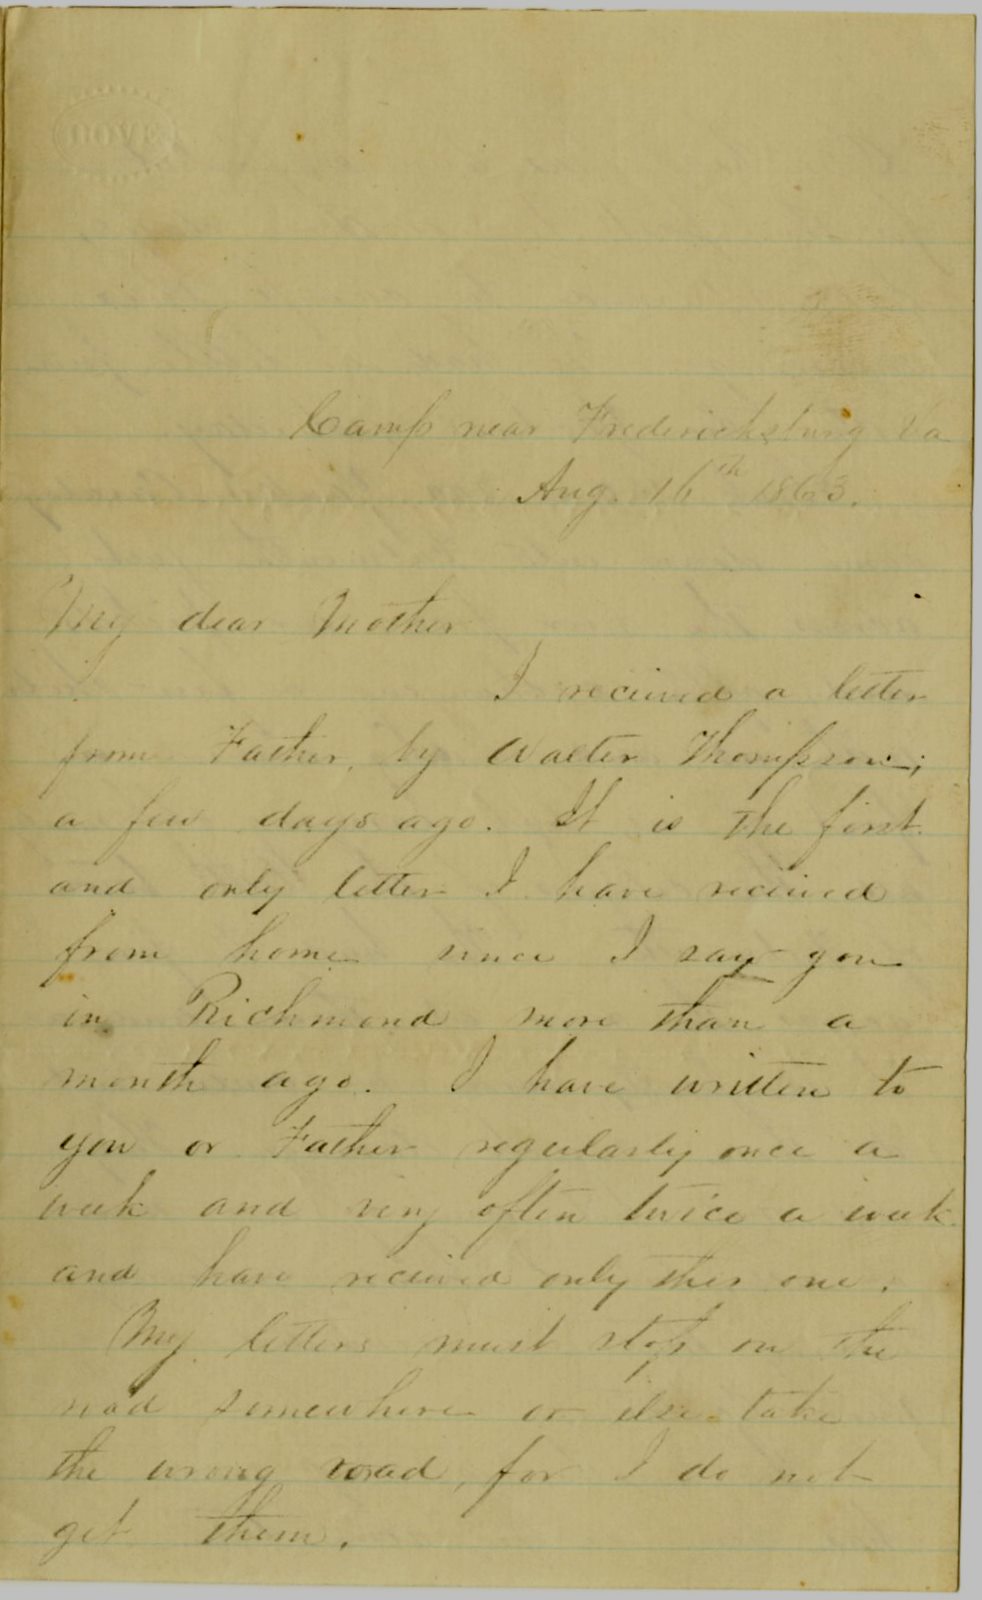 Camp near Fredericksburg Va
Aug. 16th 1863.
My dear Mother
I recieved a letter
from Father, by Walter Thompson;
a few days ago. It is the first
and only letter I have recieved
from home since I saw you
in Richmond more than a
month ago. I have written to
you or Father regularly once a
week and very often twice a week
and have recieved only this one.
My letters must stop on the
road somewhere or else take
the wrong road, for I do not
get them.